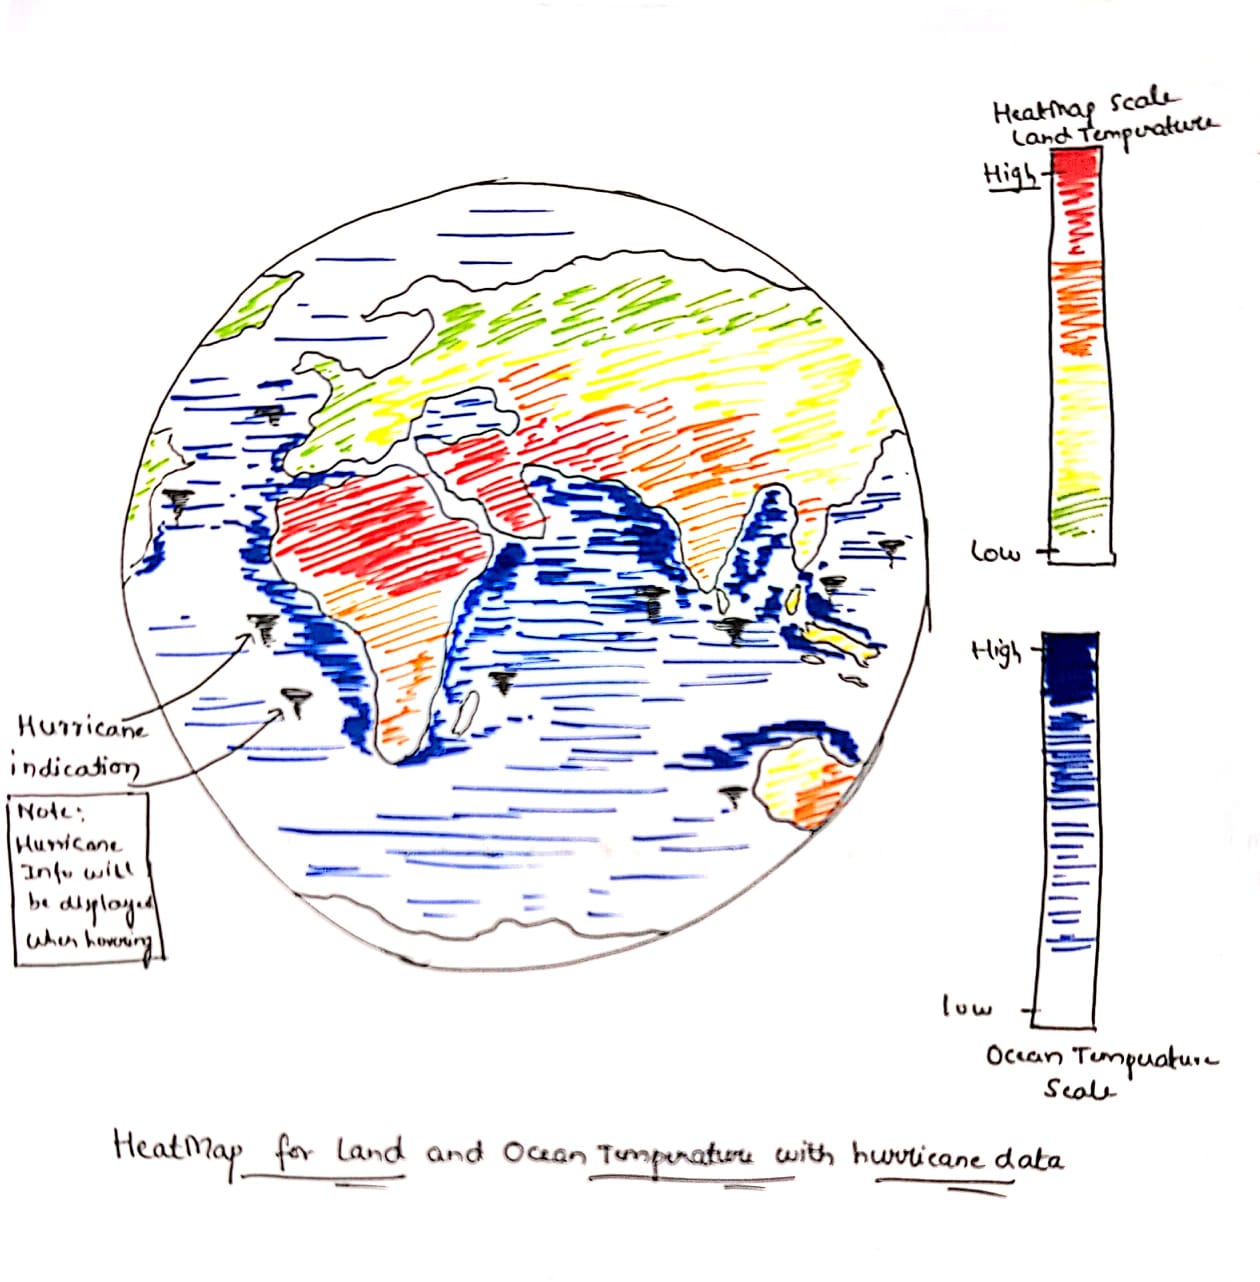 HeatMap Scale
Land Temperature
High
Low
High
low
Ocean Temperature
Scale
Hurricane
indication
Note:
Hurricane
Info will
be displayed
when hovering
HeatMap for Land and Ocean Temperature with hurricane data